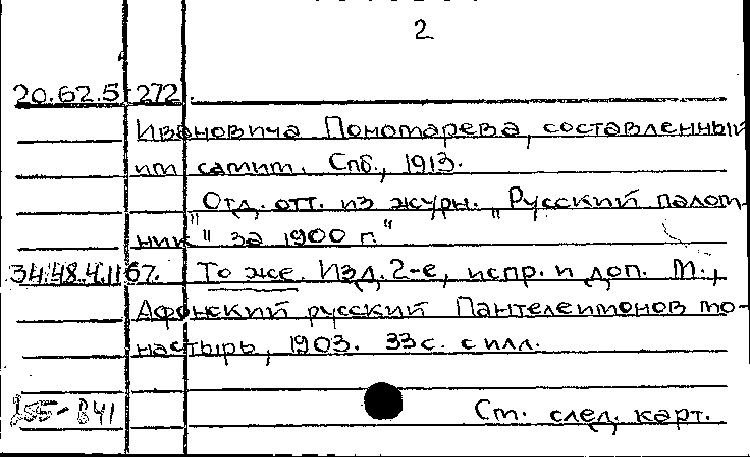 2
20.62.5 272.
Ивановича Пономарева, составленный
им самим. Спб., 1913.
"Отд. отт. из журн. „Русский палом-
ник" за 1900 г."
34.48.4.1167. То же. Изд. 2-е, испр. и доп. М.,
Афонский русский Пантелеимонов мо-
настырь, 1903. 33 с. с илл.
В41 См. след. карт.